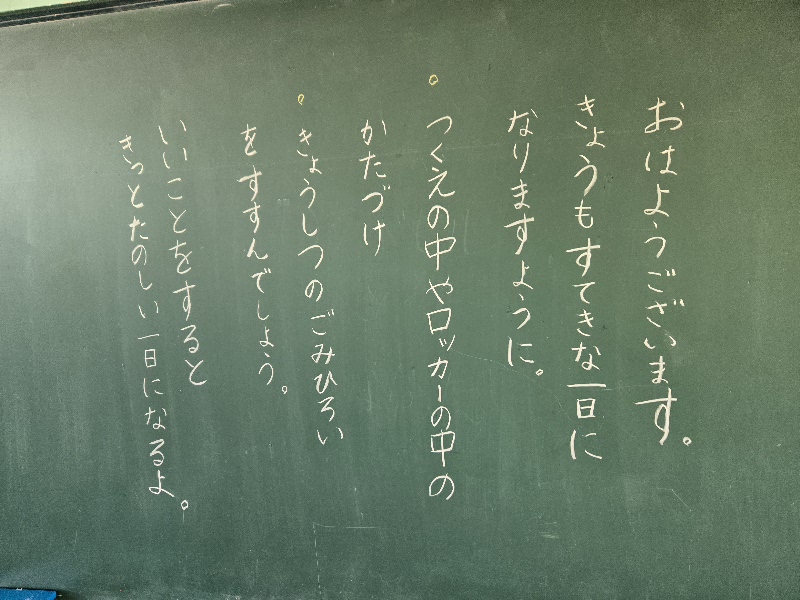 おはようございます。
きょうもすてきな一日に
なりますように。
○つくえの中やロッカーの中の
かたづけ
○きょうしつのごみひろい
をすすんでしょう。
いいことをすると
きっとたのしい一日になるよ。